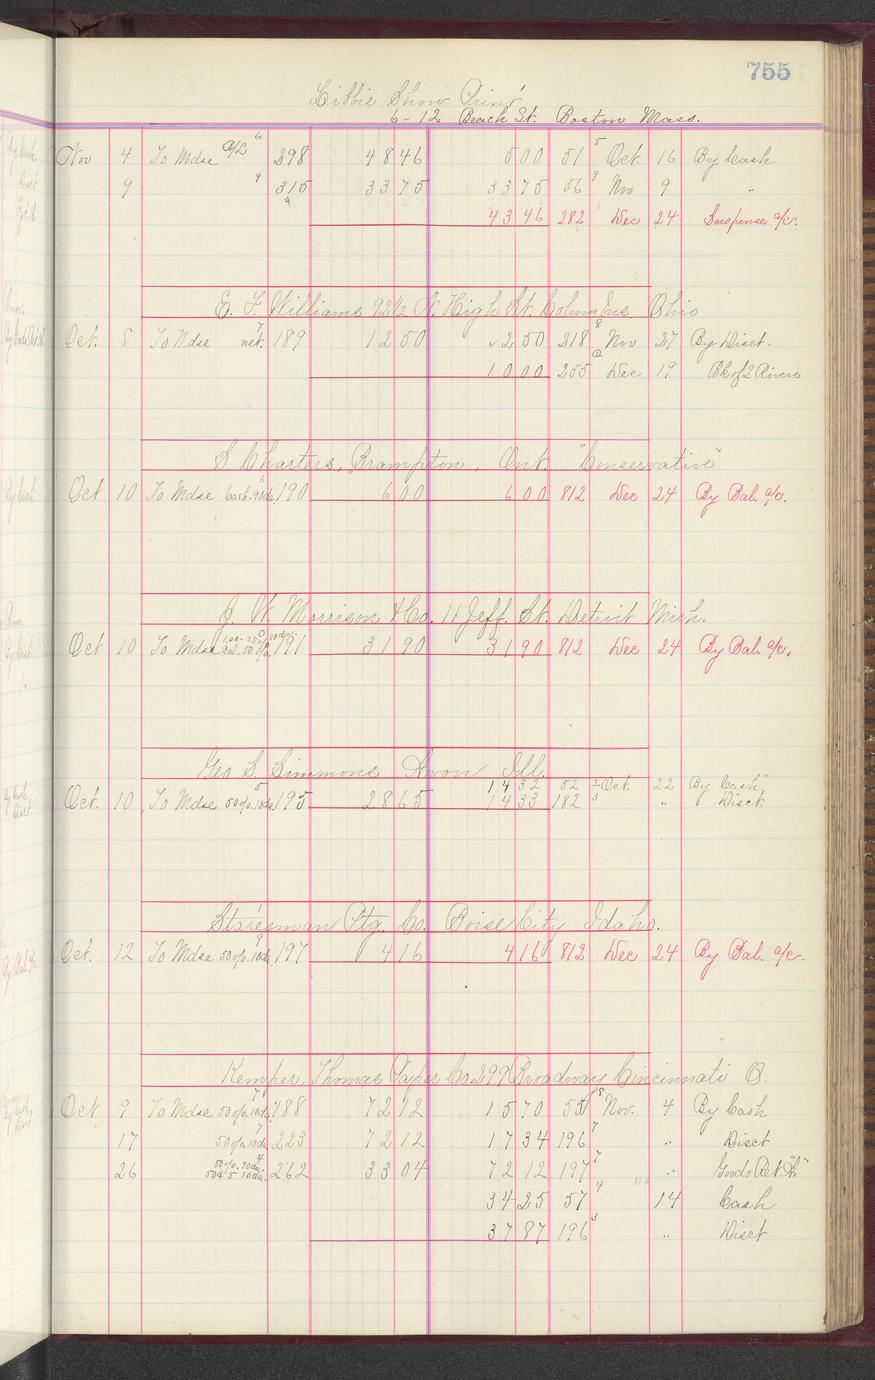 755
Libbie Show Print
6-12 Beach St. Boston Mass.
Nov 4 To Mdse a/c 6 298 48 46 5 00 51 5 Oct. 16 By Cash
9 9 315 33 75 33 75 56 9 Nov 9 "
43 46 282 Dec 24 Suspense a/c.
E. F. Williams 92½ N. High St. Columbus, Ohio
Oct. 8 To Mdse net. 7 189 12 50 2 50 218 8 Nov 27 By Disct.
10 00 255 Dec 19 Bk of 2 Rivers
S. Charters, Brampton, Ont. "Conservative"
Oct 10 To Mdse Cash-90ds. 6 190 6 00 6 00 812 Dec 24 By Bal. a/c.
J. W. Morrison & Co. 11 Jeff. St. Detroit Mich.
Oct 10 To Mdse 191 31 90 31 90 812 Dec 24 By Bal. a/c.
Geo S. Simmons Avon Ill.
14 32 52 2 Oct. 22 By Cash
Oct. 10 To Mdse 50%. 10ds. 5 195 28 65 14 33 182 3 " Disct.
Statesman Ptg. Co. Boise City Idaho.
Oct. 12 To Mdse 50%. 10ds. 9 197 4 16 4 16 812 Dec 24 By Bal. a/c.
Kemper, Thomas Paper Co. 299 Broadway Cincinnati O.
Oct 9 To Mdse 50%. 10ds. 7 188 72 12 15 70 55 8 Nov. 4 By Cash
17 50%. 10ds. 7 223 72 12 17 34 196 7 " Disct
26 50%. 20ds. 4 50&5 10ds. 262 33 04 72 12 197 7 " Goods Ret. "A"
34 25 57 4 14 Cash
37 87 196 3 " Disct